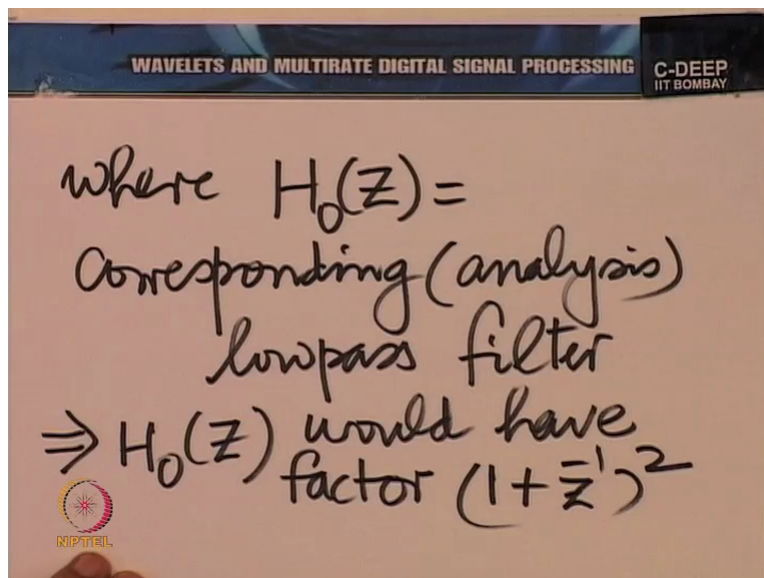 WAVELETS AND MULTIRATE DIGITAL SIGNAL PROCESSING
C-DEEP
IIT BOMBAY
where H₀(Z)=
Corresponding (analysis)
lowpass filter
⇒ H₀(Z) would have
factor (1+z⁻¹)²
NPTEL